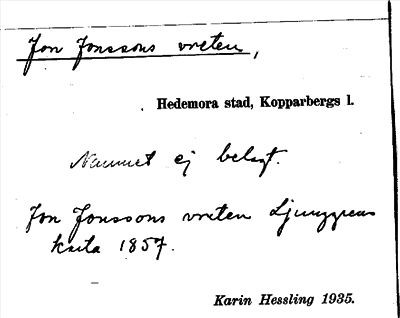 Jon Jonssons vreten,
Hedemora stad, Kopparbergs l.
Namnet ej belagt.
Jon Jonssons vreten Ljunggrens
karta 1857.
Karin Hessling 1935.